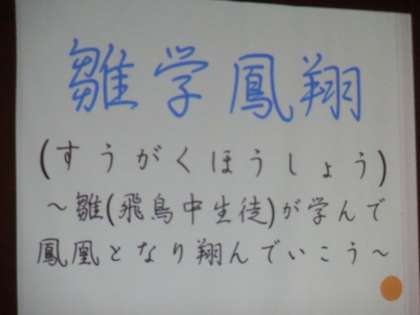 雛学鳳翔
(すうがくほうしょう)
～雛(飛鳥中生徒)が学んで
鳳凰となり翔んでいこう～